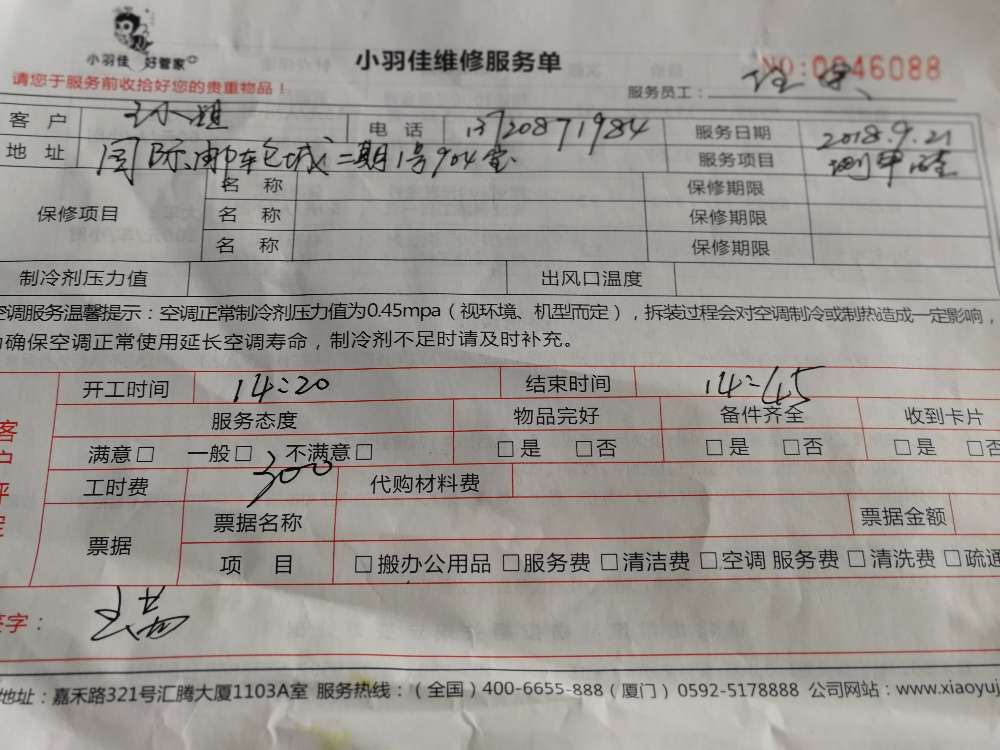 小羽佳 好管家
小羽佳维修服务单
NO:0046088
请您于服务前收拾好您的贵重物品！
服务员工：
客 户 王小姐 电 话 13720871984 服务日期 2018.9.21
地 址 国际邮轮城二期1号904室 服务项目 测甲醛
保修项目 名 称 保修期限
名 称 保修期限
名 称 保修期限
制冷剂压力值 出风口温度
空调服务温馨提示：空调正常制冷剂压力值为0.45mpa（视环境、机型而定），拆装过程会对空调制冷或制热造成一定影响，
确保空调正常使用延长空调寿命，制冷剂不足时请及时补充。
开工时间 14:20 结束时间 14:45
服务态度 物品完好 备件齐全 收到卡片
满意□ 一般□ 不满意□ □是 □否 □是 □否 □是 □否
工时费 300 代购材料费
票据 票据名称 票据金额
项 目 □搬办公用品 □服务费 □清洁费 □空调 服务费 □清洗费 □疏通
签字：
地址：嘉禾路321号汇腾大厦1103A室 服务热线：（全国）400-6655-888（厦门）0592-5178888 公司网站：www.xiaoyuj